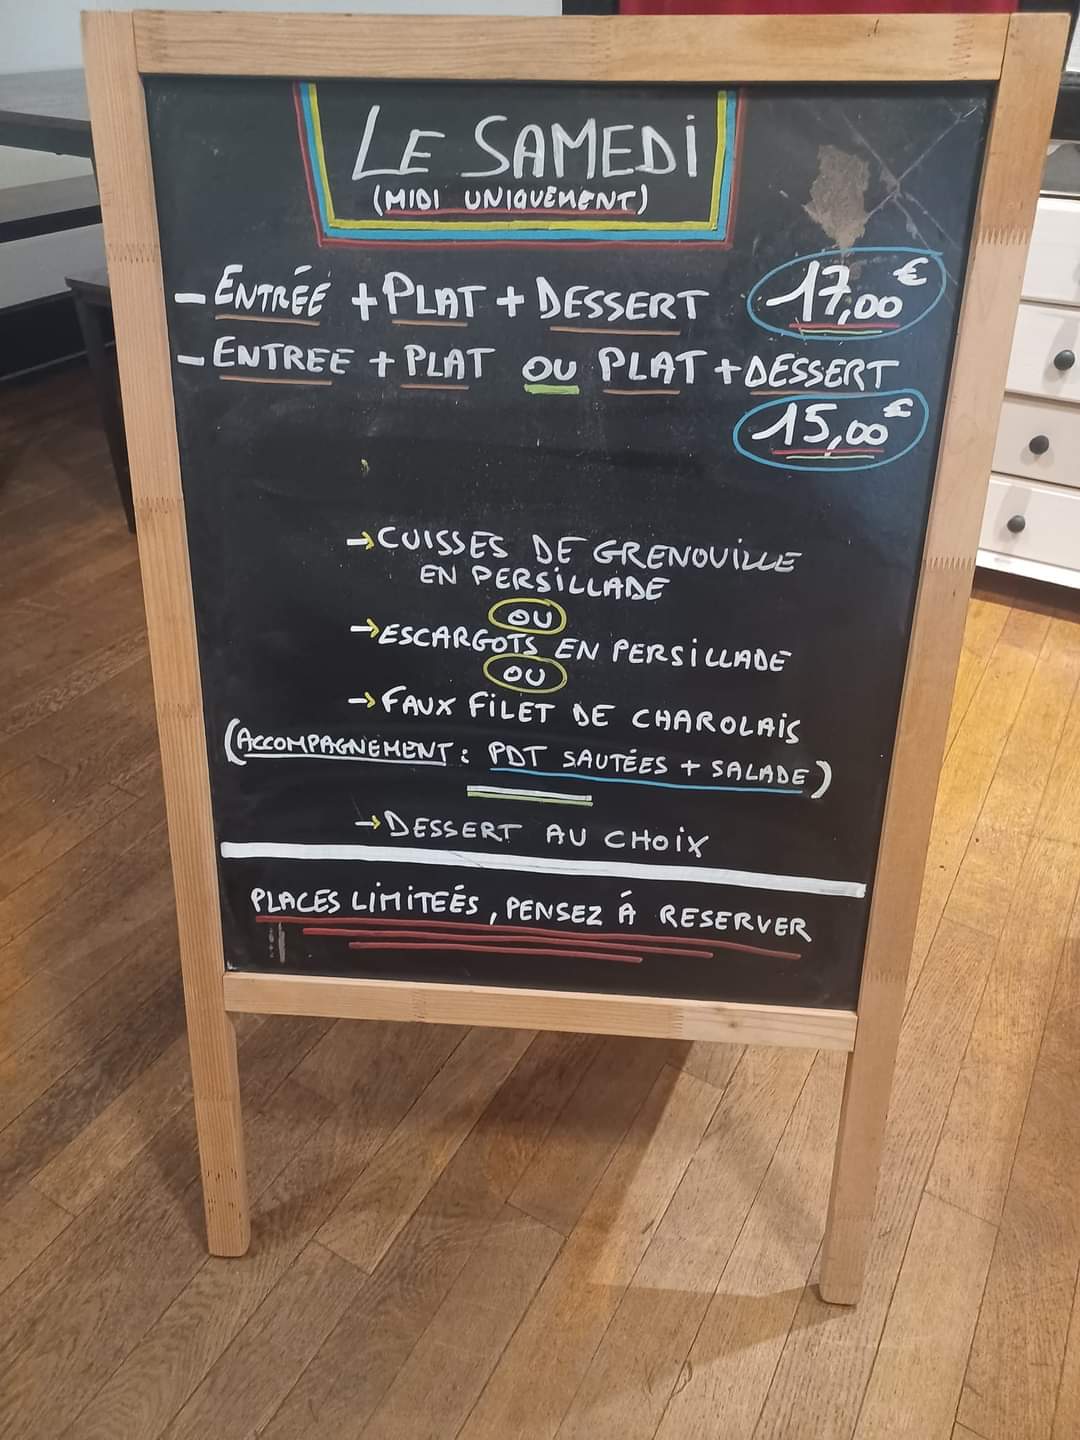 LE SAMEDI
(MIDI UNIQUEMENT)
- ENTRÉE + PLAT + DESSERT 17,00€
- ENTREE + PLAT OU PLAT + DESSERT
15,00€
→ CUISSES DE GRENOUILLE
EN PERSILLADE
OU
→ ESCARGOTS EN PERSILLADE
OU
→ FAUX FILET DE CHAROLAIS
(ACCOMPAGNEMENT : PDT SAUTÉES + SALADE)
→ DESSERT AU CHOIX
PLACES LIMITEÉS, PENSEZ À RESERVER